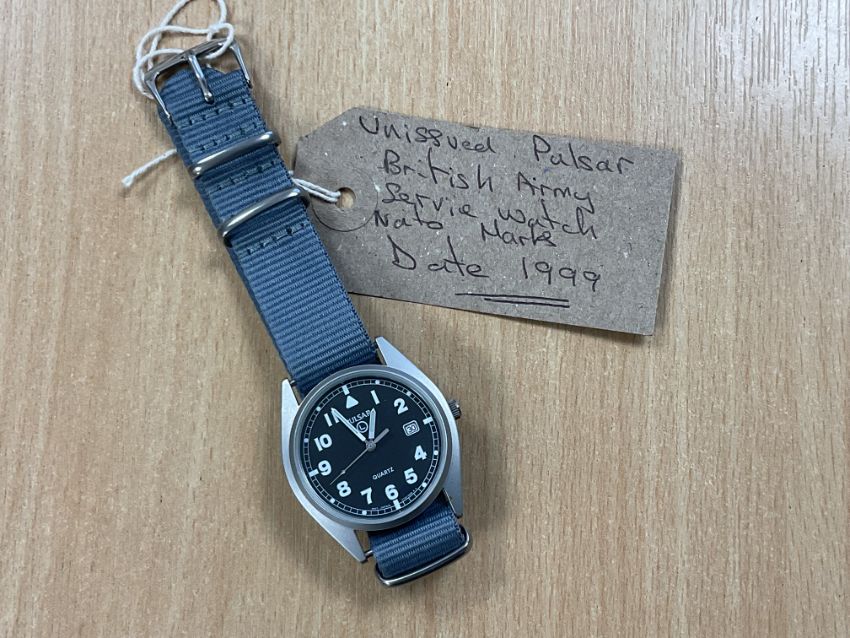 Unissued Pulsar
British Army
Servie watch
Nato Marks
Date 1999
PULSAR
L
QUARTZ
30
1
2
4
5
6
7
8
9
10
11